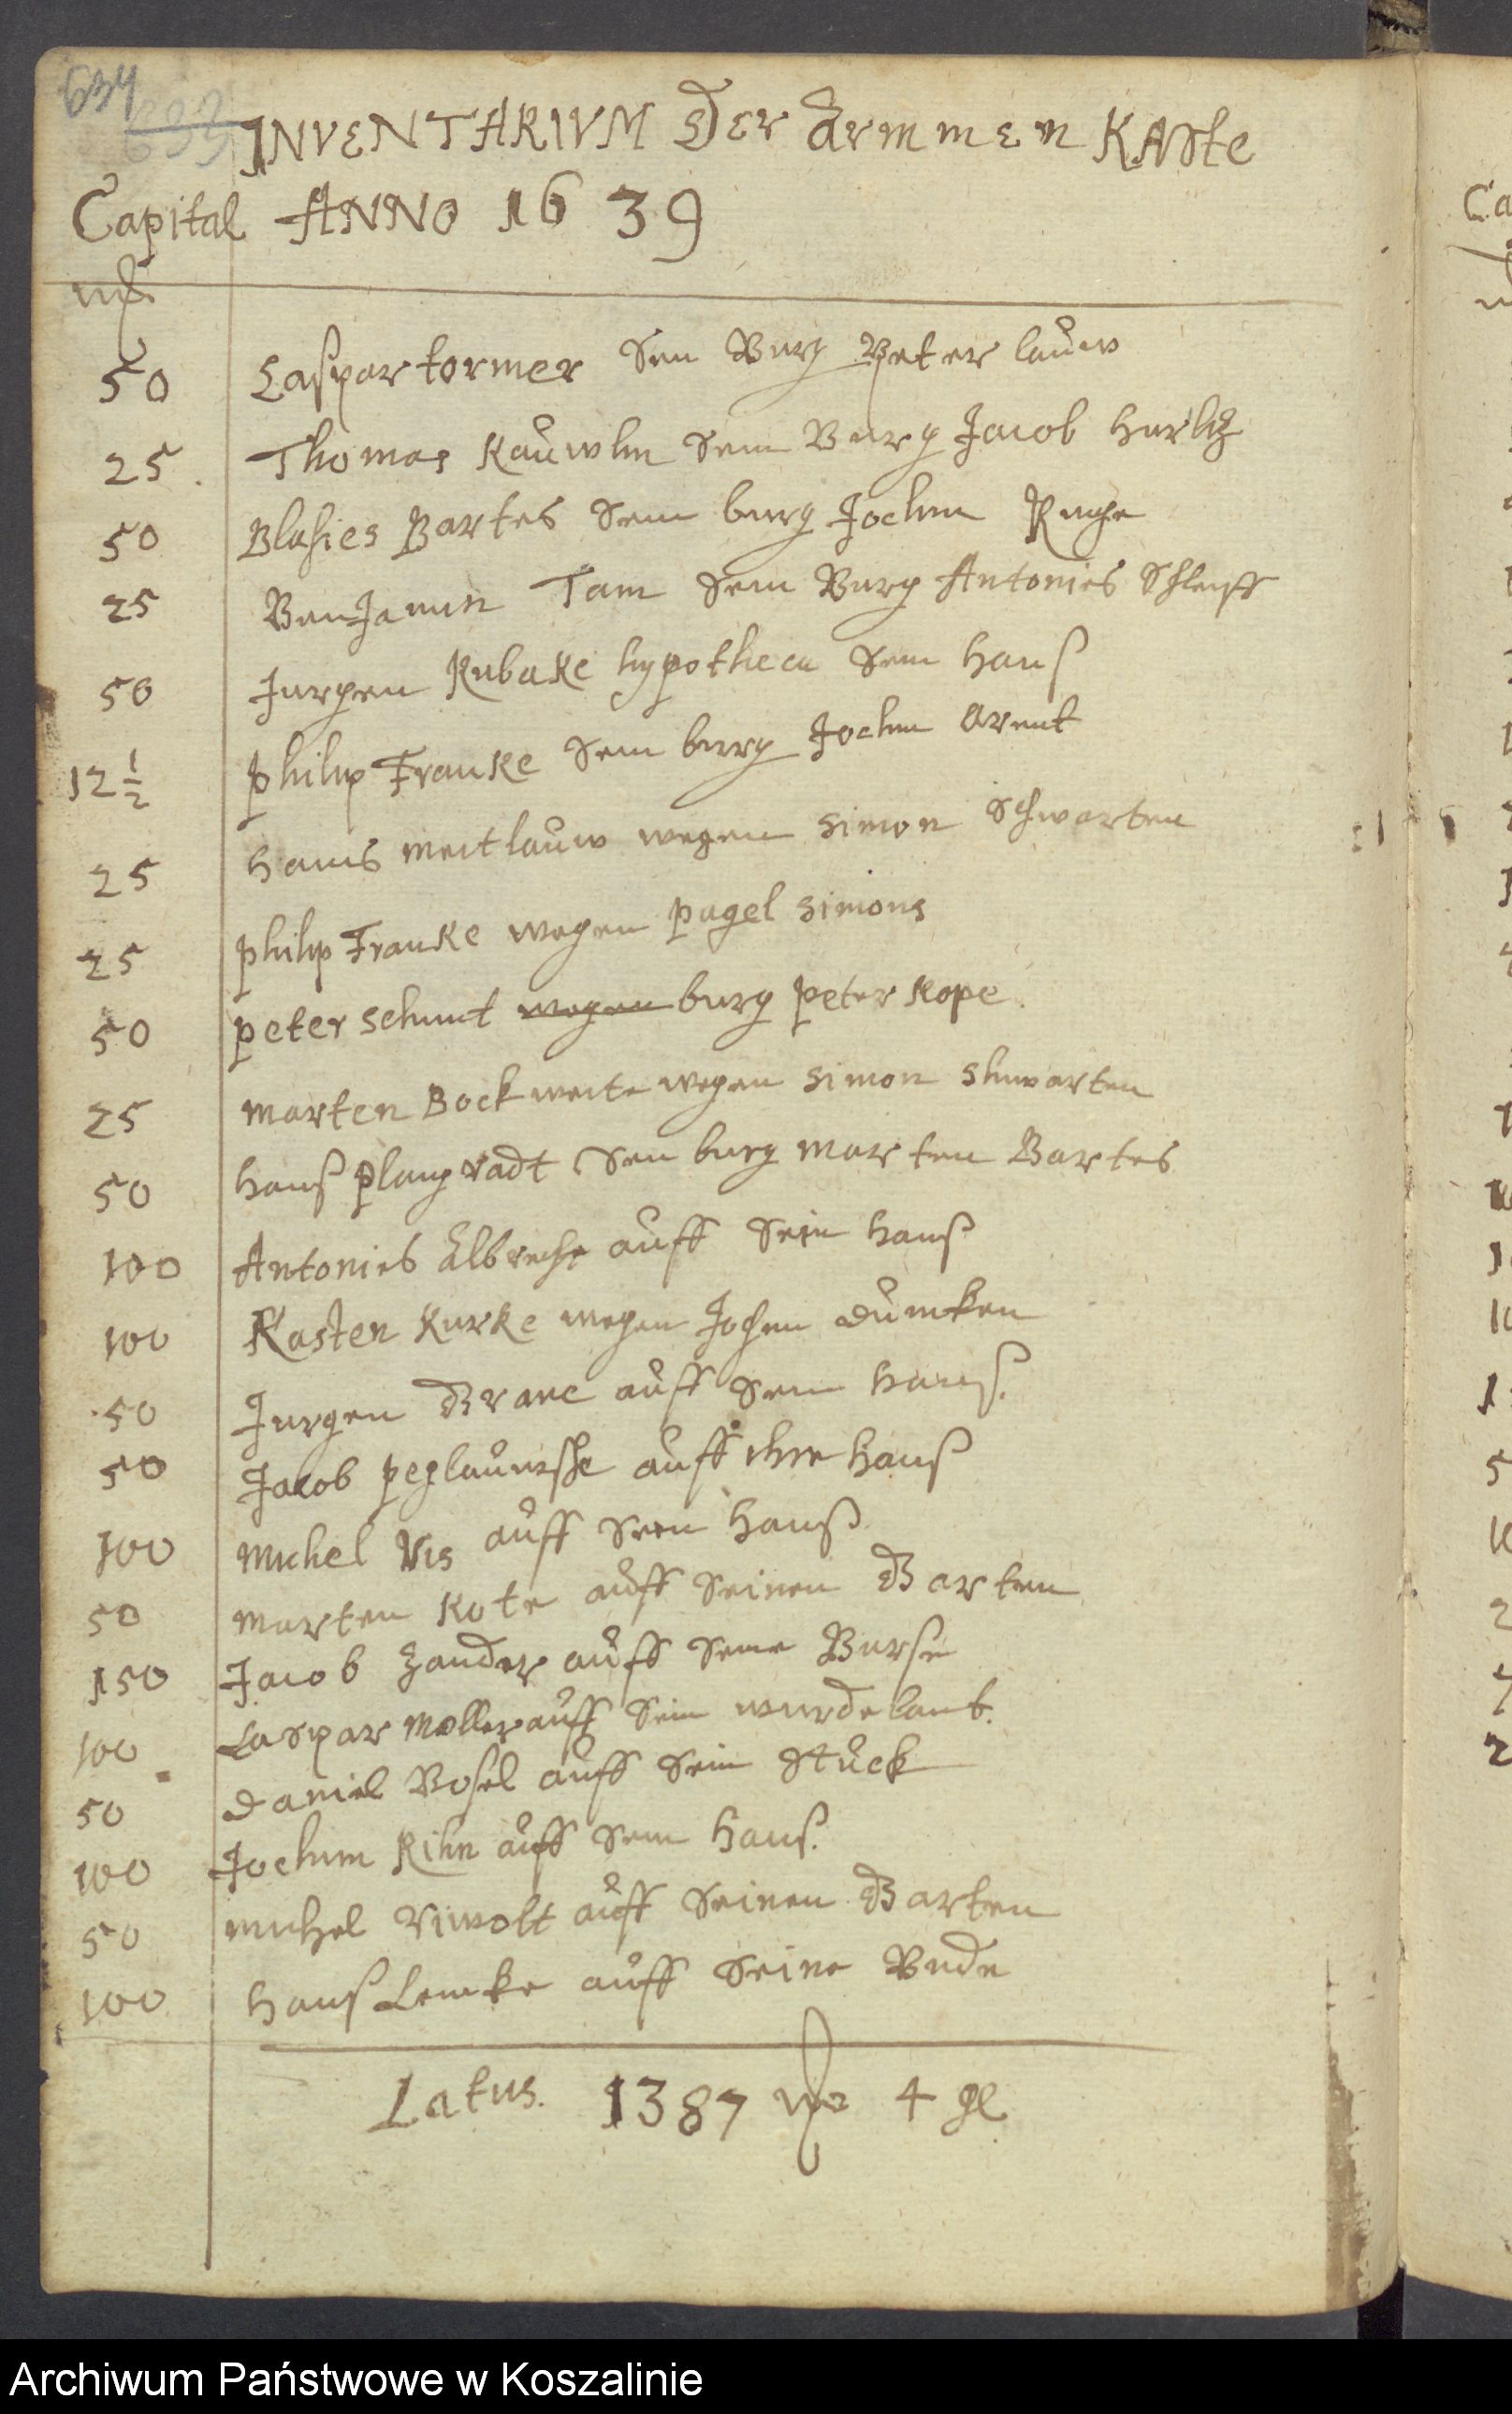 634
633
INVENTARIVM Der Armmen KASte
Capital ANNO 1639
mk
50 Caspar tormer Sen Burg Peter lauw
25. Thomas Kauwlin Sein Burg Jacob
50 Blasies Bartes Sein burg Jochim Ruge
25 BenJamin Tam Sein Burg Antonies Schleiff
50 Jurgen Kubake hypotheca Sein Hauß
12 1/2 philip Franke Sein burg Jochim Arent
25 Hans meitlauw wegen Simon Schwarten
25 philip Franke wegen pagel Simons
50 peter Schmit wegen burg peter Kope
25 marten Bockweite wegen Simon Shwarten
50 Hanß plangradt Sen burg marten Bartes
100 Antonies Elbreche auff Sein Hauß
100 Kasten Kurke wegen Jochim dumken
50 Jurgen Grane auff Sein Hauß.
50 Jacob peglauwsche auff ihre Hauß
100 Michel Vis auff Sein Hauß
50 marten Kote auff Seinen Garten
150 Jacob Zander auff Seine Burse
100 Caspar Moller auff Sein wurdelant.
50 Daniel Vosel auff Sein Stück
100 Jochim Kihn auff Sein Hauß.
50 Michel Viwolt auff Seinen Garten
100 Hanß Lemke auff Seine Bude
Latus. 1387 mk 4 gl
Ca
Archiwum Państwowe w Koszalinie